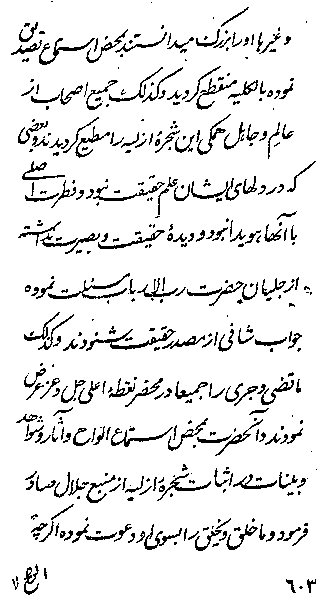 و غیرها او را بزرگ میدانستند بمحض استماع تصدیق
نموده بالکلیه منقطع گردید و کذلک جمیع اصحاب از
عالم و جاهل همگی این شجرهٔ ازلیه را مطیع گردیدند و بعضی
که در دلهای ایشان علم حقیقت نبود و فطرت اصلی
با آنها هویدا نبود و دیدهٔ حقیقت و بصیرت نداشته
از جلیان حضرت رب الارباب مسئلت نموده
جواب شافی از مصدر حقیقت شنودند و کذلک
ما قضی و جری را جمیعا در محضر نقطهٔ اعلی جل و عز عرض
نمودند و آنحضرت بمحض استماع الواح و آثار و شواهد
و بینات در اثبات شجرهٔ ازلیه از منبع جلال صادر
فرمود و ما خلق و یخلق را بسوی او دعوت نموده اگرچه
۶۰۳